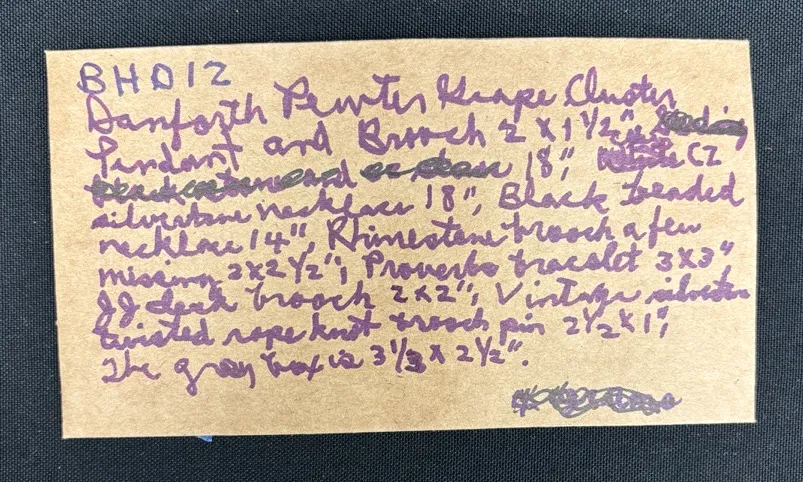 BHD12
Danforth Pewter Grape Cluster
Pendant and Brooch 2 x 1 1/2"
18", CZ
silvertone necklace 18", Black beaded
necklace 14", Rhinestone brooch a few
missing 2x2 1/2"; Proverbs bracelet 3x3"
JJ duck brooch 2x2"; Vintage silvertone
twisted rope knot brooch pin 2 1/2 x 1";
The gray box is 3 1/3 x 2 1/2".